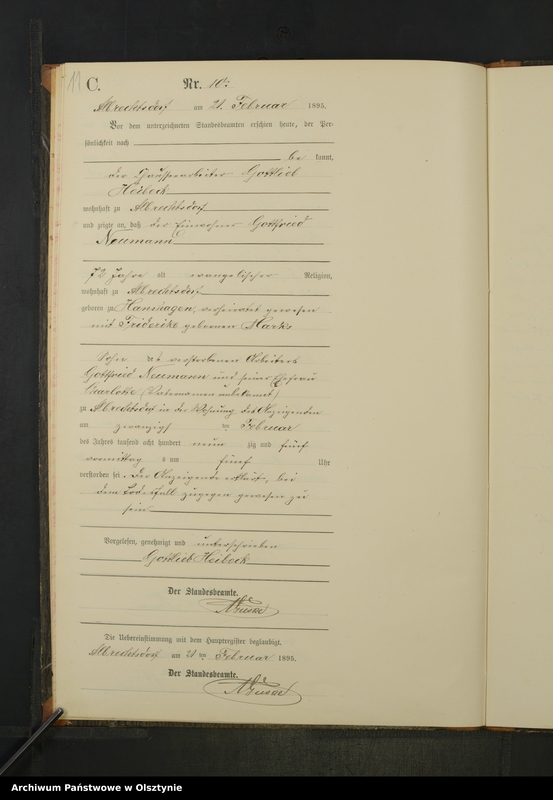 11
C.
Nr. 10.
Albrechtsdorf am 21. Februar 1895.
Vor dem unterzeichneten Standesbeamten erschien heute, der Per-
sönlichkeit nach
be kannt,
der Gottlieb
Heibock
wohnhaft zu Albrechtsdorf
und zeigte an, daß der Einwohner Gottfried
Neumann
72 Jahre alt evangelischer Religion,
wohnhaft zu Albrechtsdorf
geboren zu Hanshagen, verheiratet gewesen
mit Friderike gebornen Marks
Sohn des verstorbenen Arbeiters
Gottfried Neumann und seiner Ehefrau
Charlotte (Vatersnamen unbekannt)
zu Albrechtsdorf in der Wohnung des Anzeigenden
am zwanzigsten Februar
des Jahres tausend acht hundert neun zig und fünf
vormittags um fünf Uhr
verstorben sei. Der Anzeigende erklärte, bei
dem Todesfall zugegen gewesen zu
sein
Vorgelesen, genehmigt und unterschrieben
Gottlieb Heibock
Der Standesbeamte.
Die Uebereinstimmung mit dem Hauptregister beglaubigt.
Albrechtsdorf am 21ten Februar 1895.
Der Standesbeamte.
Archiwum Państwowe w Olsztynie